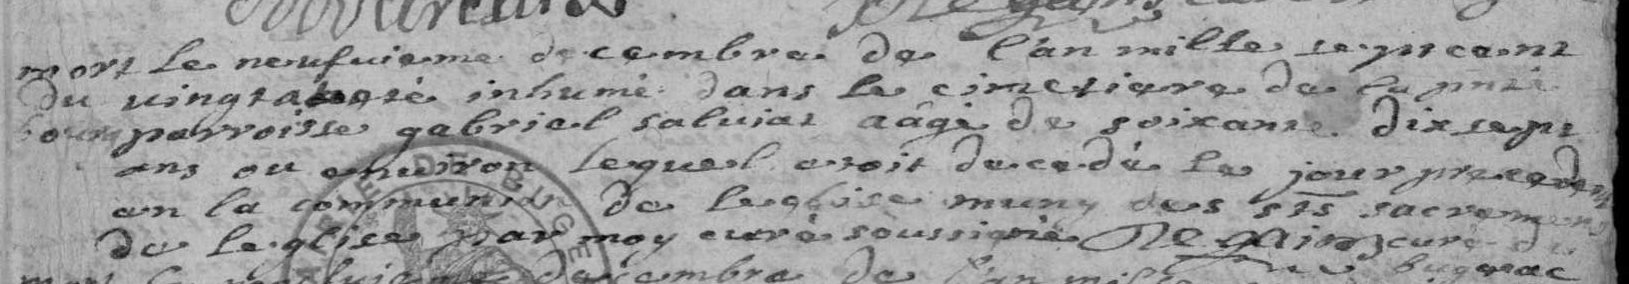 mort le neufuieme decembre de l'an mille sept cent
du vingt a esté inhumé dans le cimetiere de la pnte
parroisse gabriel saluiat aâgé de soixante dix sept
ans ou enuiron lequel etoit decedé le jour precedent
en la communion de leglise muny des sts sacremens
de leglise par moy curé soussigné curé du
bugue
mort le neufuieme decembre de l'an mille